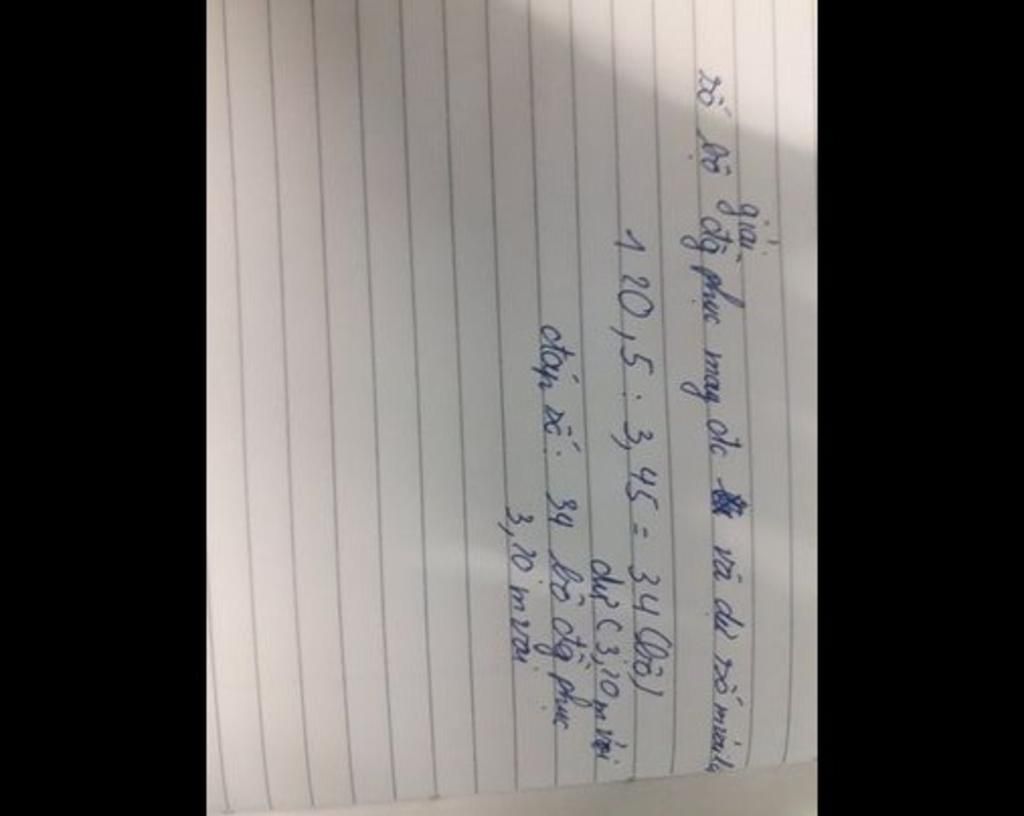 giải
số bộ đồ phục may đc và dư số m vải là
120,5 : 3,45 = 34 (bộ)
dư (3,20 m vải
đáp số: 34 bộ đồ phục
3,20 m vải